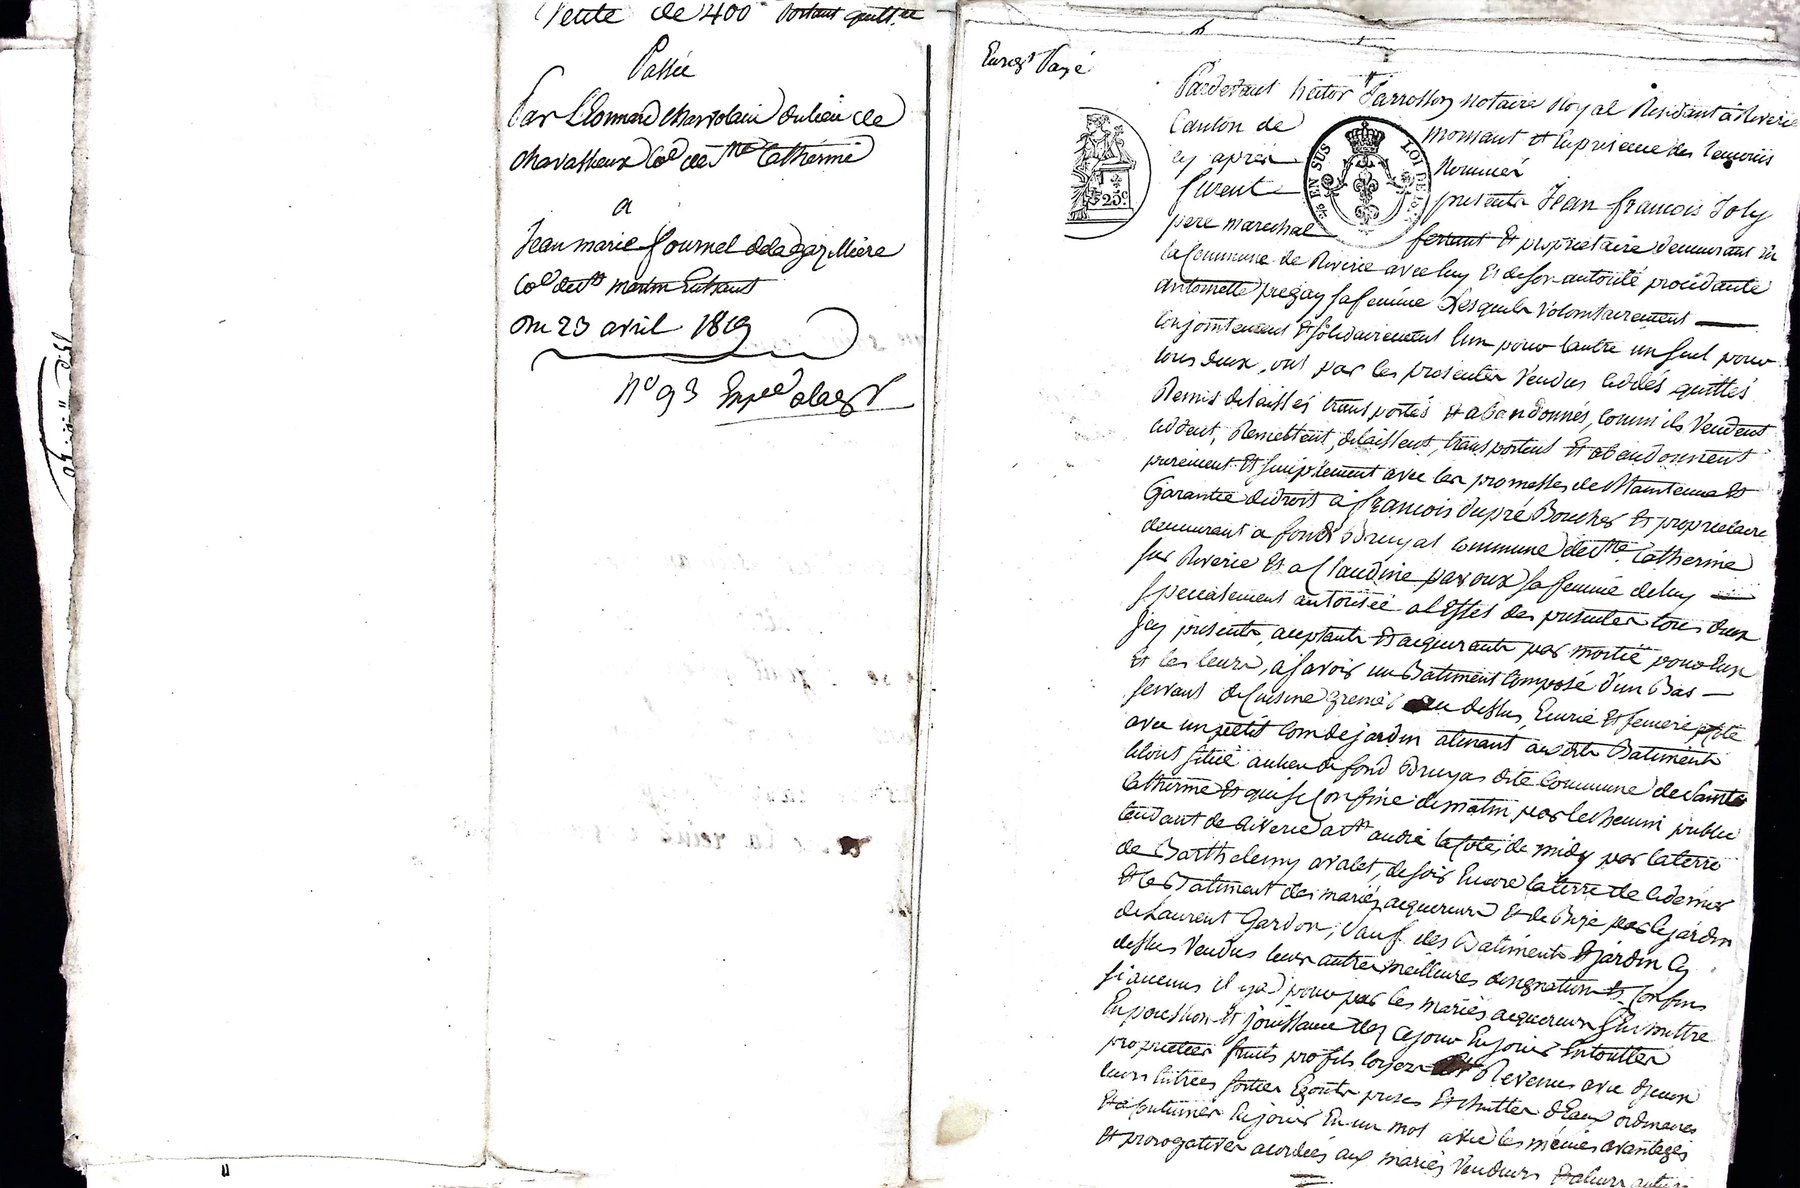 Vente de 400 portant quitt.ce
Passée
Par Léonnard charvolain du lieu de
chavasseux Co.e de Ste Catherine
a
Jean marie fournel de la gazilliere
Co.e de St martin En haut
Du 23 avril 1819
N.o 93 Exp.ée
Enreg.t Payé
Pardevant hector Jarrosson notaire Royal Résidant à Riverie
Canton de mornant Et En présence des témoins
cy après Nommés
furent présents Jean francois Joly
pere marechal ferrant Et proprietaire demeurant En
la Commune de Riverie avec luy Et de son autorité procédante
antoinette pregay sa femme Lesquels Volontairement
Conjointement Et solidairement l'un pour l'autre un seul pour
tous deux, ont par les presentes Vendus cédés quittés
Remis delaissés transportés Et abandonnés, comm'ils Vendent
cèdent, Remettent, delaissent, transportent Et abandonnent
purement Et simplement avec les promesses de Maintenue Et
Garantie de droit à francois Dupré Boucher Et proprietaire
demeurant a fond Bruyas commune de Ste Catherine
sur Riverie Et a Claudine pavoux sa femme de luy
specialement autorisée a l'Effet des presentes tous deux
Icy presents, acceptants Et acquerants par moitié pour Eux
Et les leurs, a savoir un Batiment Composé d'un Bas
servant de Cuisine grenier au dessus, Ecurie Et feniere
avec un petit Coin de jardin atenant aux dits Batiments
le tout situé au lieu de fond Bruyas dite Commune de Sainte
Catherine Et qui se Confine de matin par le chemin public
tendant de Riverie a St andré la Cote, de midy par la terre
de Barthelemy avalet, de soir Encore la terre de ce dernier
Et le Batiment des mariés acquereurs Et de Bize par le jardin
de Laurent Gardon, Sauf des Batiments Et jardin Cy
dessus Vendus leurs autres meilleures designation Et Confins
si aucuns il y a pour par les mariés acquereurs s'En mettre
En possession Et jouissance dez ce jour En jouir En toutte
proprietés fruits profits loyers Revenus avec
leurs Entrées sorties Egouts prises Et chuttes d'Eaux ordinaires
Et accoutumés En jouir En un mot avec les mêmes avantages
Et prorogatives accordées aux mariés Vendeurs Et a leurs auteurs
25c.
EN SUS
LOI DE